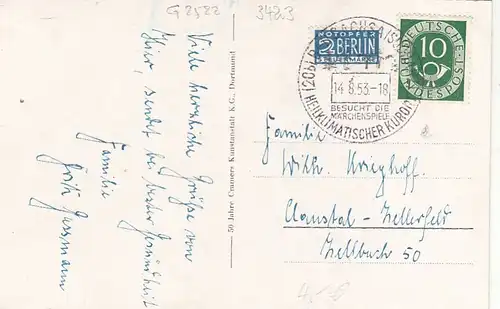 G 2582
3423
Viele herzliche Grüße von
hier, sendet bei bester Gesundheit
Familie
Fritz
50 Jahre Cramers Kunstanstalt K.G., Dortmund
NOTOPFER
2 BERLIN
STEUERMARKE
DEUTSCHE
BUNDESPOST
10
(20b) BAD SACHSA/S
14.8.53.-18
BESUCHT DIE
MÄRCHENSPIELE
HEILKLIMATISCHER KURORT
Familie
Wilh. Krieghoff.
Claustal-Zellerfeld
Zellbach 50